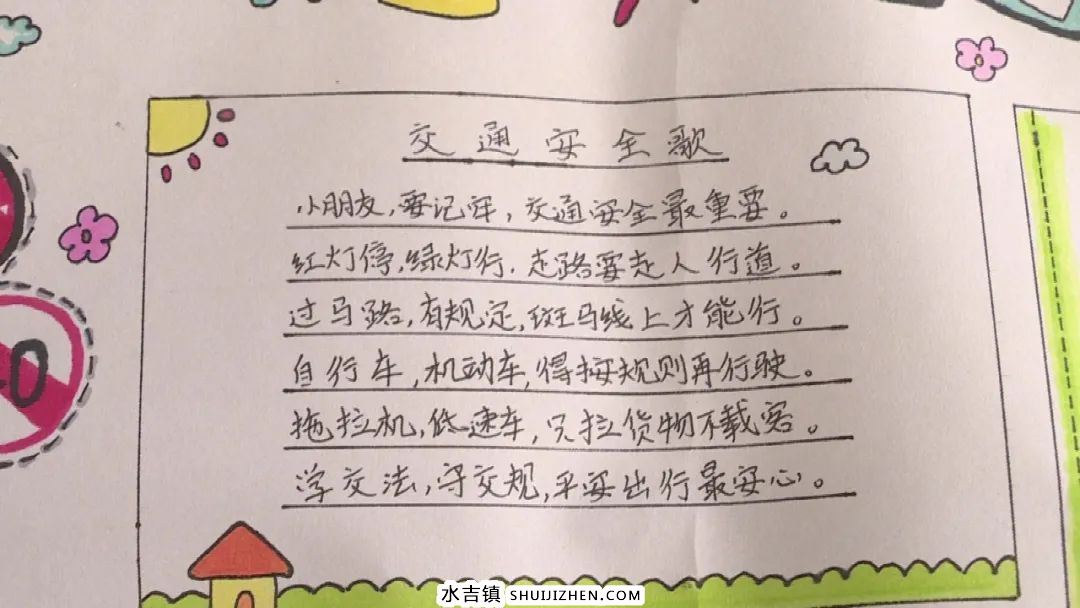 交通安全歌
小朋友，要记牢，交通安全最重要。
红灯停，绿灯行，走路要走人行道。
过马路，有规定，斑马线上才能行。
自行车，机动车，得按规则再行驶。
拖拉机，低速车，只拉货物不载客。
学交法，守交规，平安出行最安心。
水吉镇 SHUIJIZHEN.COM